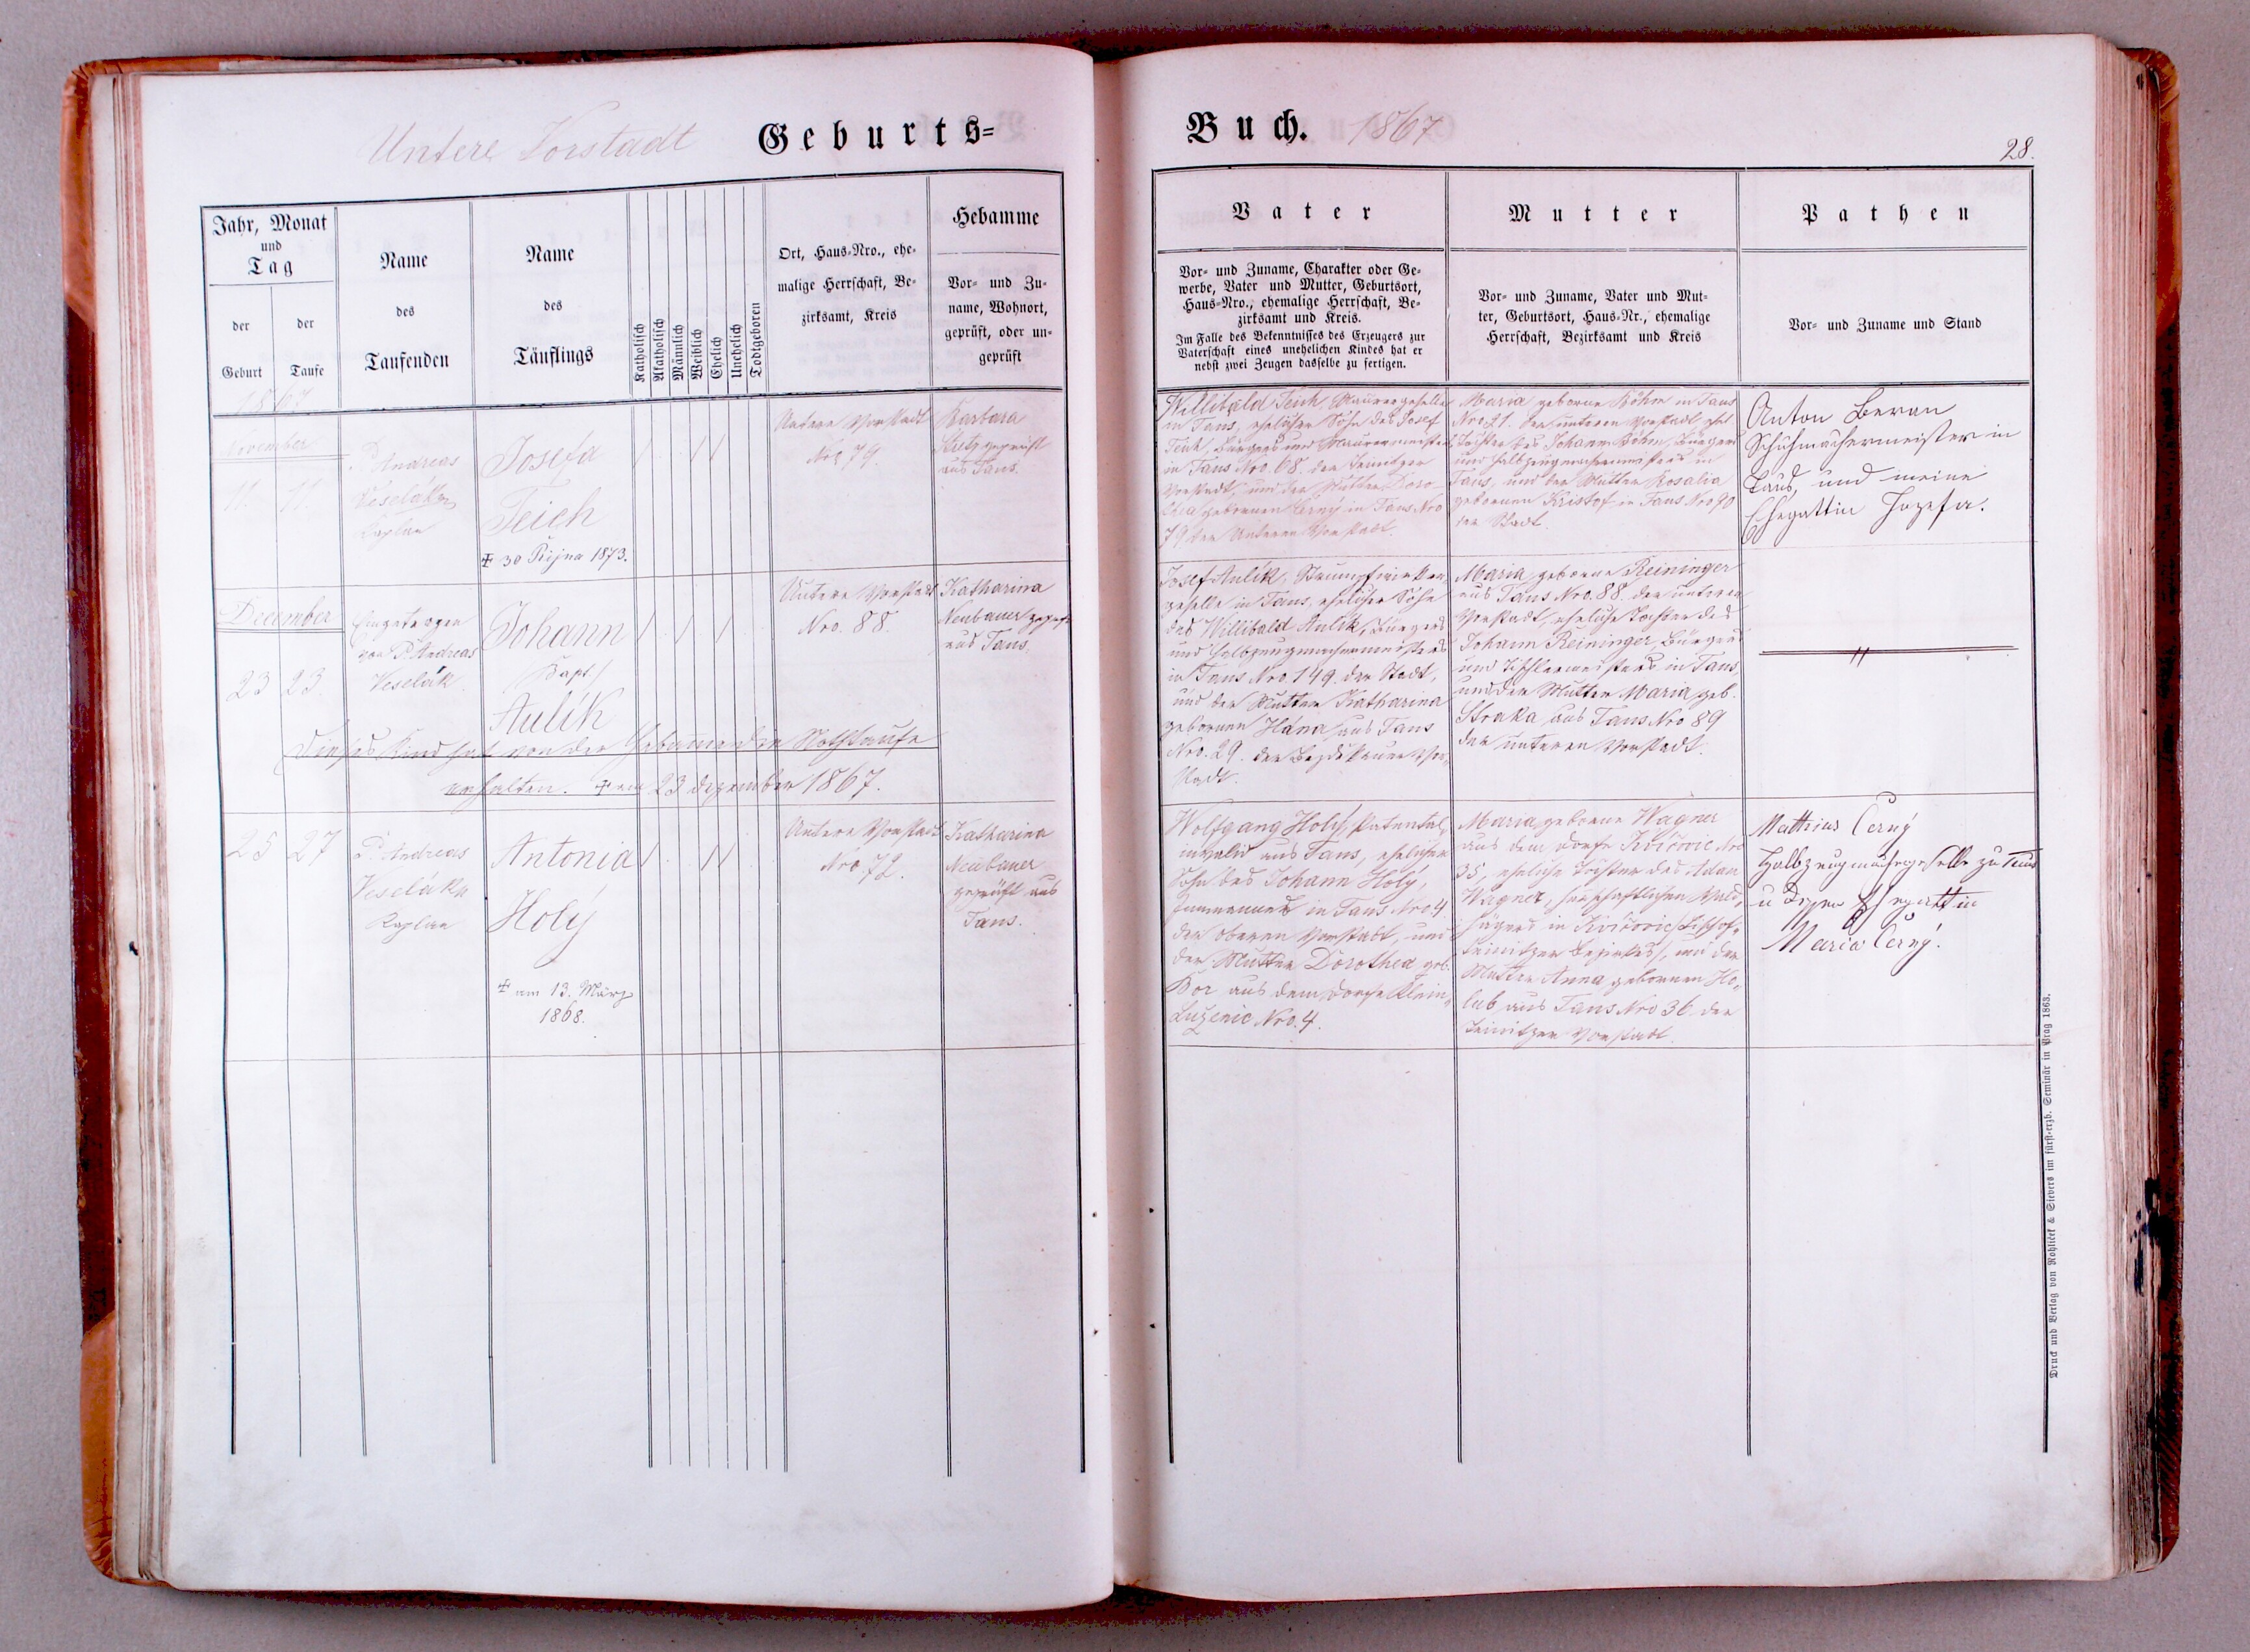 Untere Vorstadt
Geburts=
Jahr, Monat
und
Tag
der
Geburt
der
Taufe
Name
des
Taufenden
Name
des
Täuflings
Katholisch
Akatholisch
Männlich
Weiblich
Ehelich
Unehelich
Todtgeboren
Ort, Haus=Nro., ehe=
malige Herrschaft, Be=
zirksamt, Kreis
Hebamme
Vor= und Zu=
name, Wohnort,
geprüft, oder un=
geprüft
1867
November
11. 11.
P. Andreas
Veselák
Kaplan
Josefa
Teich
+ 30 Října 1873.
Untere Vorstadt
Nro 79.
Barbara
geprüft
aus Taus.
December
23 23
Eingetragen
von P. Andreas
Veselák
Johann
Bapt.
Aulík
Untere Vorstadt
Nro. 88.
Katharina
Neubauer gepr.
aus Taus.
Dieses Kind hat von der Hebamme die Nothtaufe
erhalten. + am 23 Dezember 1867.
25 27
P. Andreas
Veselák
Kaplan
Antonia
Holý
+ am 13. März
1868.
Untere Vorstadt
Nro. 72.
Katharina
Neubauer
geprüft aus
Taus.
Buch. 1867
28.
Vater
Vor= und Zuname, Charakter oder Ge=
werbe, Vater und Mutter, Geburtsort,
Haus=Nro., ehemalige Herrschaft, Be=
zirksamt und Kreis.
Im Falle des Bekenntnisses des Erzeugers zur
Vaterschaft eines unehelichen Kindes hat er
nebst zwei Zeugen dasselbe zu fertigen.
Mutter
Vor= und Zuname, Vater und Mut=
ter, Geburtsort, Haus=Nr., ehemalige
Herrschaft, Bezirksamt und Kreis
Pathen
Vor= und Zuname und Stand
Willibald Teich, Maurergeselle
in Taus, ehelicher Sohn des Josef
Teich, Bürgers und Maurermeisters
in Taus Nro. 68. der Teinitzer
Vorstadt, und der Mutter Doro=
thea gebornen Černý in Taus Nro
79 der Unteren Vorstadt.
Maria geborne Böhm in Taus
Nro. 21. der unteren Vorstadt, ehel.
Tochter des Johann Böhm, Bürgers
und Halbzeugmachermeisters in
Taus, und der Mutter Rosalia
gebornen Kristof in Taus Nro 90
der Stadt.
Anton Beran
Schuhmachermeister in
Taus, und meine
Ehegattin Jozefa.
Josef Aulík, Strumpfwirker=
geselle in Taus, ehelicher Sohn
des Willibald Aulík, Bürgers
und Halbzeugmachermeisters
in Taus Nro 149. der Stadt,
und der Mutter Katharina
gebornen Hána aus Taus
Nro. 29. der Vor=
stadt.
Maria, geborne Reininger
aus Taus Nro. 88. der unteren
Vorstadt, eheliche Tochter des
Johann Reininger, Bürgers
und Tischlermeisters in Taus,
und der Mutter Maria geb.
Straka aus Taus Nro 89
der unteren Vorstadt.
Wolfgang Holý, Patental=
invalid aus Taus, ehelicher
Sohn des Johann Holý,
in Taus Nro 4
der oberen Vorstadt, und
der Mutter Dorothea geb.
Bor aus dem Dorfe Klein=
Luženic Nro. 4.
Maria, geborne Wagner
aus dem Dorfe Kvičovic Nro
35, eheliche Tochter des Adam
Wagner, herrschaftlichen Wald=
hägers in Kvičovic (Bischof=
teinitzer Bezirkes), und der
Mutter Anna gebornen Ho=
lub aus Taus Nro 36. der
Teinitzer Vorstadt.
Mathias Černý
Halbzeugmachergeselle zu Taus
u dessen Ehegattin
Maria Černý.
Druck und Verlag von Rohliček & Sievers im fürst=erzb. Seminär in Prag 1863.